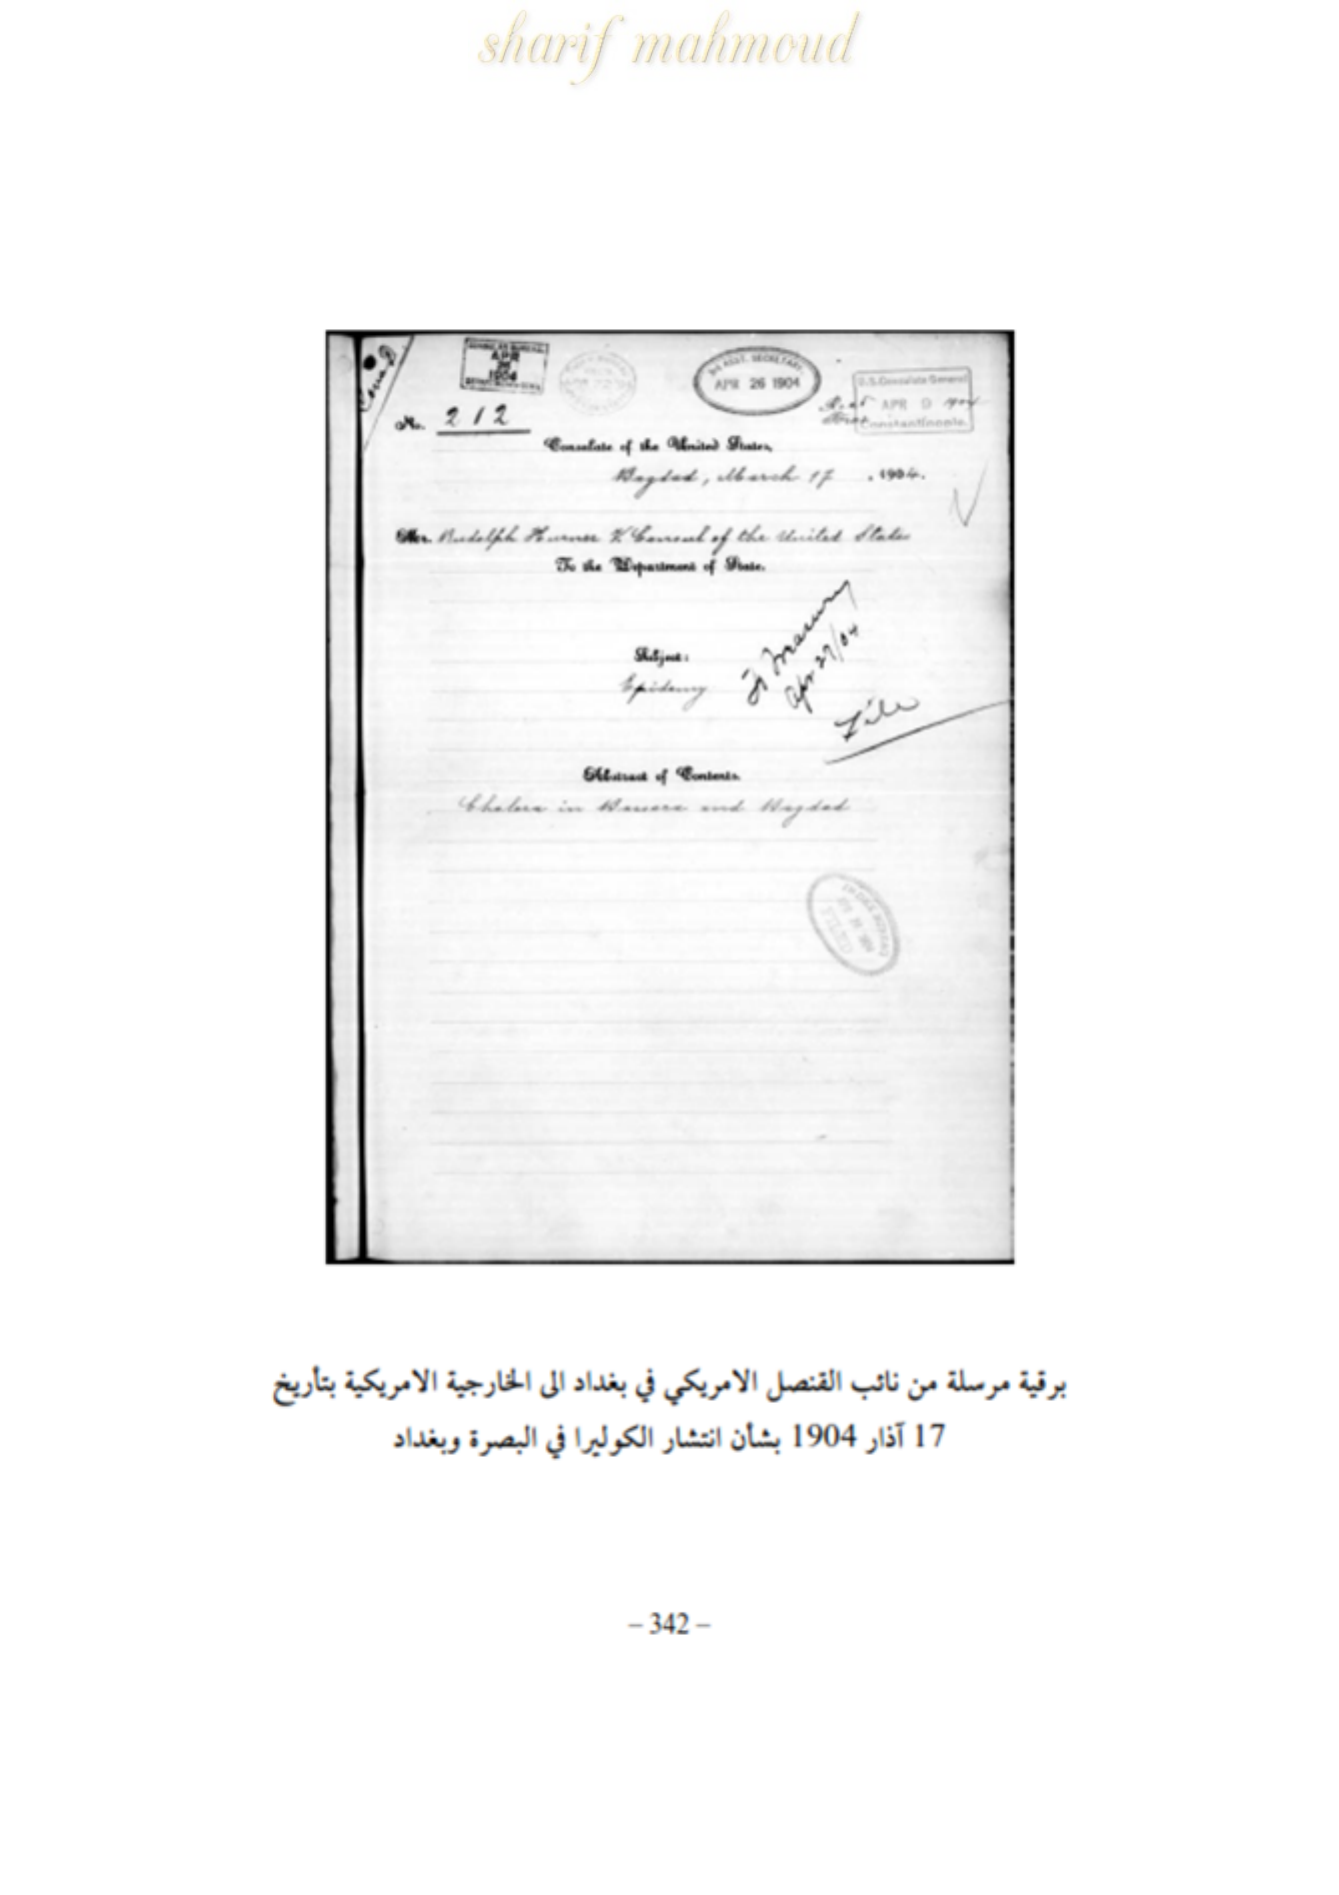 sharif mahmoud
APR
26
1904
3rd ASST. SECRETARY.
APR 26 1904
U.S. Consulate General
APR 9 1904
Constantinople.
No. 212
Consulate of the United States,
Bagdad, March 17, 1904.
Mr. Rudolph Hurner V. Consul of the United States
To the Department of State.
Subject:
Epidemy
To Treasury
Apr 27/04
File
Abstract of Contents.
Cholera in Bassora and Bagdad
برقية مرسلة من نائب القنصل الامريكي في بغداد الى الخارجية الامريكية بتأريخ
17 آذار 1904 بشأن انتشار الكوليرا في البصرة وبغداد
– 342 –